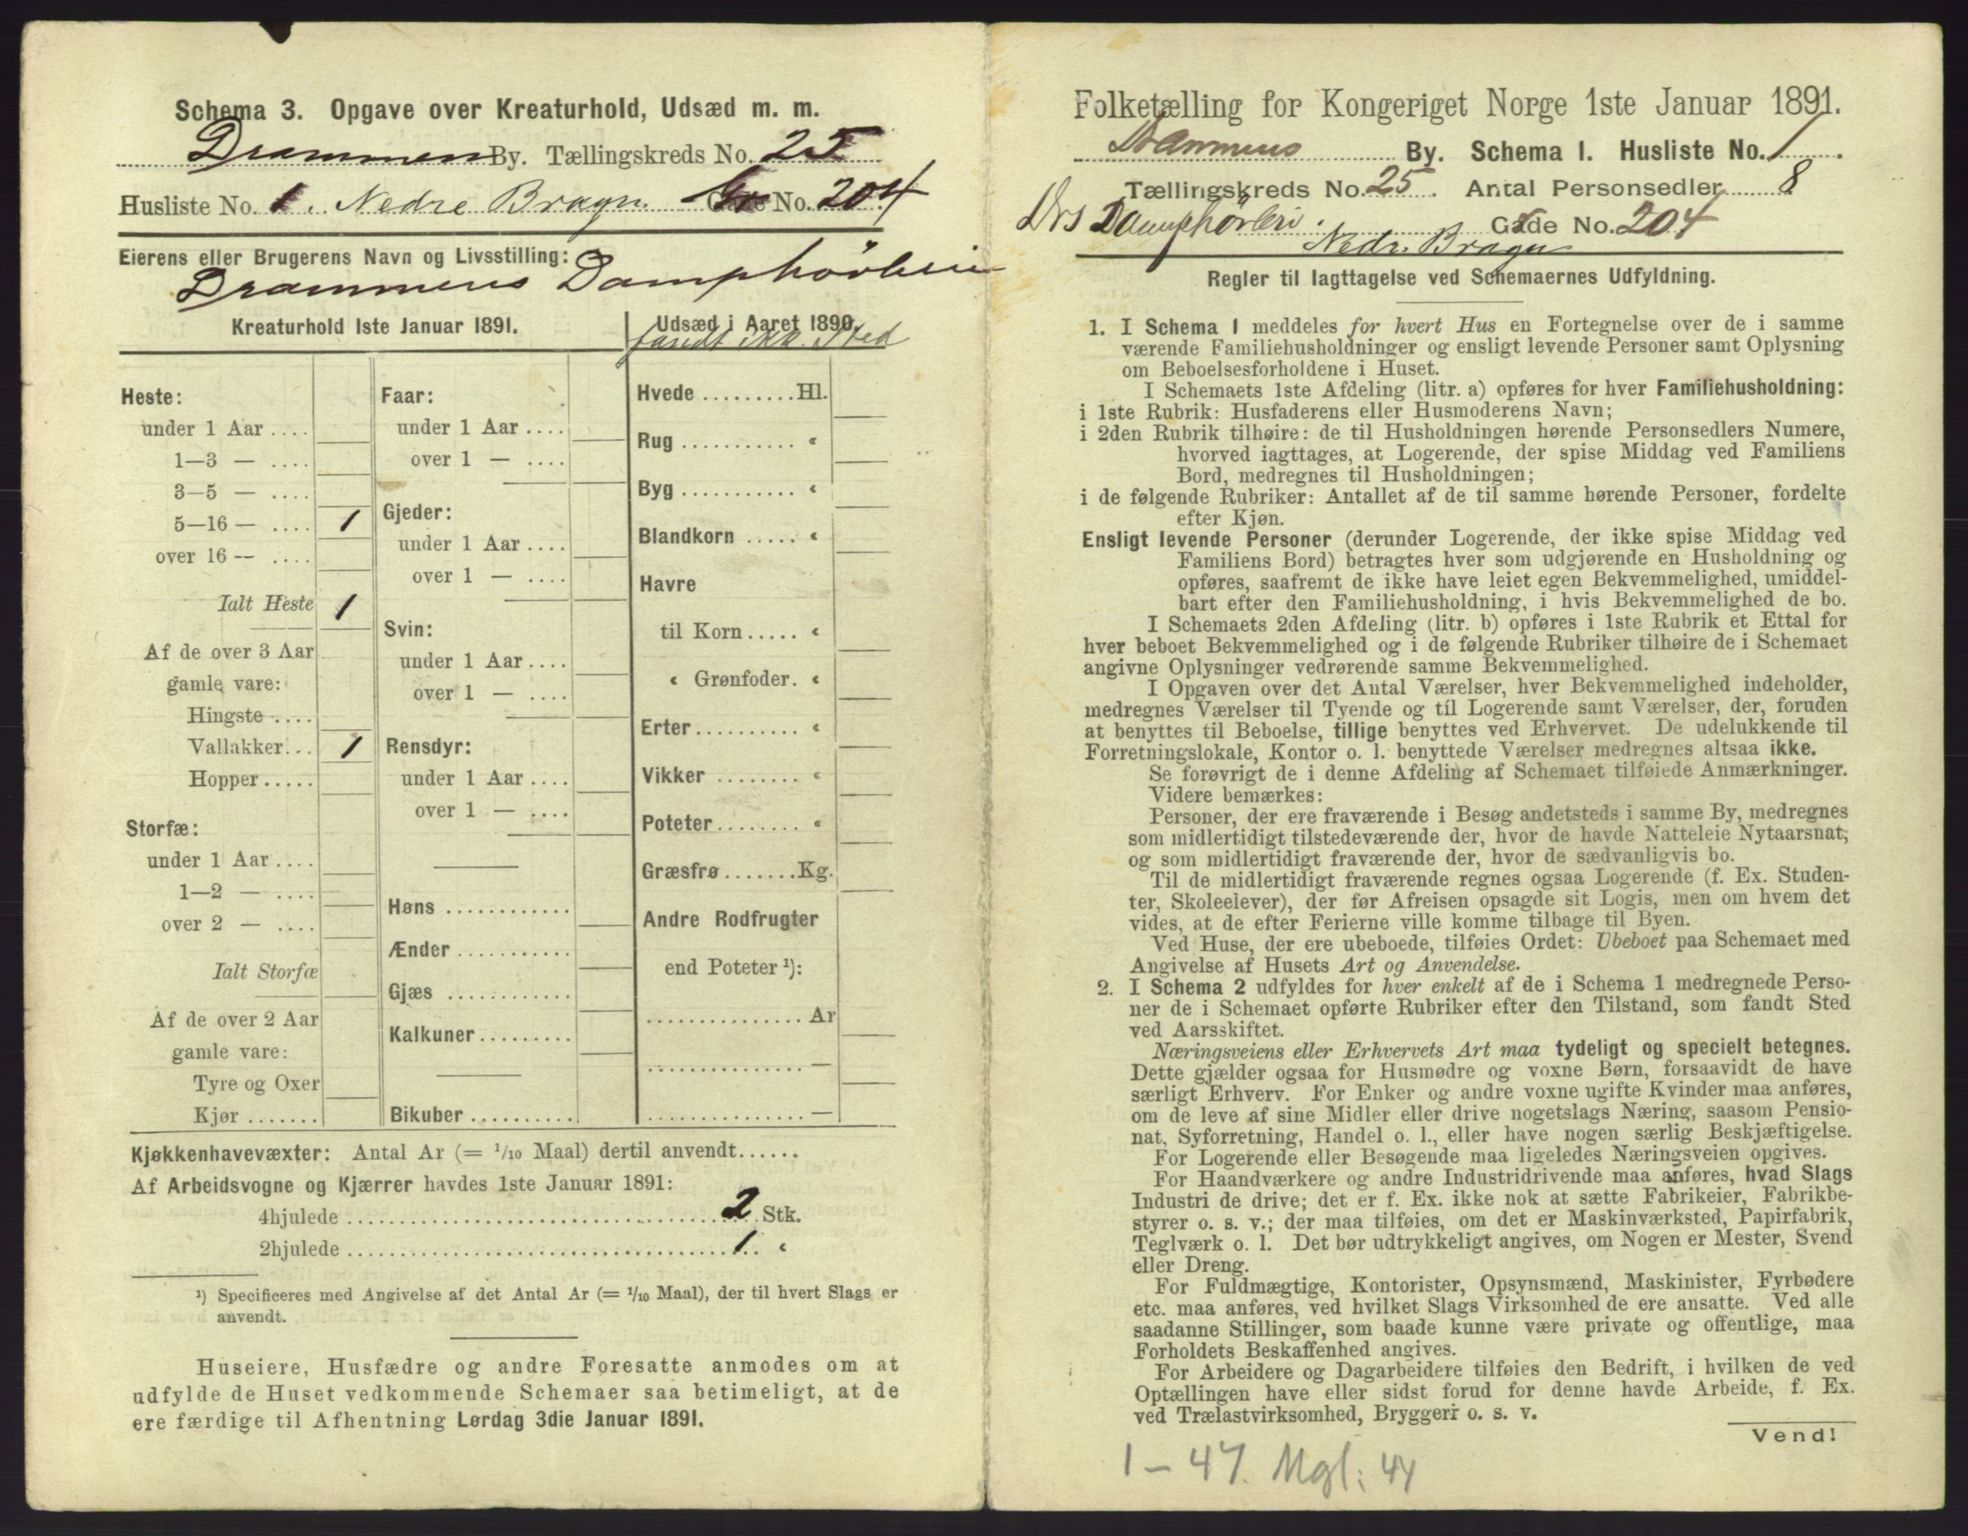 Schema 3. Opgave over Kreaturhold, Udsæd m. m.
Drammens By. Tællingskreds No. 25
Husliste No. 1. Nedre Bragn. Gade No. 204
Eierens eller Brugerens Navn og Livsstilling:
Drammens Damphøvleri
Kreaturhold 1ste Januar 1891.
Udsæd i Aaret 1890.
fandt ikke Sted
Heste:
under 1 Aar ....
1—3 — ....
3—5 — ....
5—16 — .... 1
over 16 — ....
Ialt Heste 1
Af de over 3 Aar
gamle vare:
Hingste ....
Vallakker... 1
Hopper.....
Storfæ:
under 1 Aar ....
1—2 — ....
over 2 — ....
Ialt Storfæ
Af de over 2 Aar
gamle vare:
Tyre og Oxer
Kjør .......
Faar:
under 1 Aar ....
over 1 — ....
Gjeder:
under 1 Aar ....
over 1 — ....
Svin:
under 1 Aar ....
over 1 — ....
Rensdyr:
under 1 Aar ....
over 1 — ....
Høns ............
Ænder ...........
Gjæs ............
Kalkuner.........
Bikuber ..........
Hvede .........Hl.
Rug ........... «
Byg ........... «
Blandkorn ..... «
Havre
til Korn..... «
« Grønfoder. «
Erter.......... «
Vikker ........ «
Poteter........ «
Græsfrø .......Kg.
Andre Rodfrugter
end Poteter ¹):
............... Ar
............... —
............... —
Kjøkkenhavevæxter: Antal Ar (= 1/10 Maal) dertil anvendt......
Af Arbeidsvogne og Kjærrer havdes 1ste Januar 1891:
4hjulede ........................................ 2 Stk.
2hjulede ........................................ 1. «
¹) Specificeres med Angivelse af det Antal Ar (= 1/10 Maal), der til hvert Slags er
anvendt.
Huseiere, Husfædre og andre Foresatte anmodes om at
udfylde de Huset vedkommende Schemaer saa betimeligt, at de
ere færdige til Afhentning Lørdag 3die Januar 1891.
Folketælling for Kongeriget Norge 1ste Januar 1891.
Drammens By. Schema 1. Husliste No. 1.
Tællingskreds No. 25. Antal Personsedler 8
Drs Damphøvleri. Gade No. 204
Nedr. Bragn
Regler til Iagttagelse ved Schemaernes Udfyldning.
1. I Schema 1 meddeles for hvert Hus en Fortegnelse over de i samme
værende Familiehusholdninger og ensligt levende Personer samt Oplysning
om Beboelsesforholdene i Huset.
I Schemaets 1ste Afdeling (litr. a) opføres for hver Familiehusholdning:
i 1ste Rubrik: Husfaderens eller Husmoderens Navn;
i 2den Rubrik tilhøire: de til Husholdningen hørende Personsedlers Numere,
hvorved iagttages, at Logerende, der spise Middag ved Familiens
Bord, medregnes til Husholdningen;
i de følgende Rubriker: Antallet af de til samme hørende Personer, fordelte
efter Kjøn.
Ensligt levende Personer (derunder Logerende, der ikke spise Middag ved
Familiens Bord) betragtes hver som udgjørende en Husholdning og
opføres, saafremt de ikke have leiet egen Bekvemmelighed, umiddel-
bart efter den Familiehusholdning, i hvis Bekvemmelighed de bo.
I Schemaets 2den Afdeling (litr. b) opføres i 1ste Rubrik et Ettal for
hver beboet Bekvemmelighed og i de følgende Rubriker tilhøire de i Schemaet
angivne Oplysninger vedrørende samme Bekvemmelighed.
I Opgaven over det Antal Værelser, hver Bekvemmelighed indeholder,
medregnes Værelser til Tyende og til Logerende samt Værelser, der, foruden
at benyttes til Beboelse, tillige benyttes ved Erhvervet. De udelukkende til
Forretningslokale, Kontor o. l. benyttede Værelser medregnes altsaa ikke.
Se forøvrigt de i denne Afdeling af Schemaet tilføiede Anmærkninger.
Videre bemærkes:
Personer, der ere fraværende i Besøg andetsteds i samme By, medregnes
som midlertidigt tilstedeværende der, hvor de havde Natteleie Nytaarsnat,
og som midlertidigt fraværende der, hvor de sædvanligvis bo.
Til de midlertidigt fraværende regnes ogsaa Logerende (f. Ex. Studen-
ter, Skoleelever), der før Afreisen opsagde sit Logis, men om hvem det
vides, at de efter Ferierne ville komme tilbage til Byen.
Ved Huse, der ere ubeboede, tilføies Ordet: Ubeboet paa Schemaet med
Angivelse af Husets Art og Anvendelse.
2. I Schema 2 udfyldes for hver enkelt af de i Schema 1 medregnede Perso-
ner de i Schemaet opførte Rubriker efter den Tilstand, som fandt Sted
ved Aarsskiftet.
Næringsveiens eller Erhvervets Art maa tydeligt og specielt betegnes.
Dette gjælder ogsaa for Husmødre og voxne Børn, forsaavidt de have
særligt Erhverv. For Enker og andre voxne ugifte Kvinder maa anføres,
om de leve af sine Midler eller drive nogetslags Næring, saasom Pensio-
nat, Syforretning, Handel o. l., eller have nogen særlig Beskjæftigelse.
For Logerende eller Besøgende maa ligeledes Næringsveien opgives.
For Haandværkere og andre Industridrivende maa anføres, hvad Slags
Industri de drive; det er f. Ex. ikke nok at sætte Fabrikeier, Fabrikbe-
styrer o. s. v.; der maa tilføies, om det er Maskinværksted, Papirfabrik,
Teglværk o. l. Det bør udtrykkeligt angives, om Nogen er Mester, Svend
eller Dreng.
For Fuldmægtige, Kontorister, Opsynsmænd, Maskinister, Fyrbødere
etc. maa anføres, ved hvilket Slags Virksomhed de ere ansatte. Ved alle
saadanne Stillinger, som baade kunne være private og offentlige, maa
Forholdets Beskaffenhed angives.
For Arbeidere og Dagarbeidere tilføies den Bedrift, i hvilken de ved
Optællingen have eller sidst forud for denne havde Arbeide, f. Ex.
ved Trælastvirksomhed, Bryggeri o. s. v.
Vend!
1 – 47. Mgl: 44